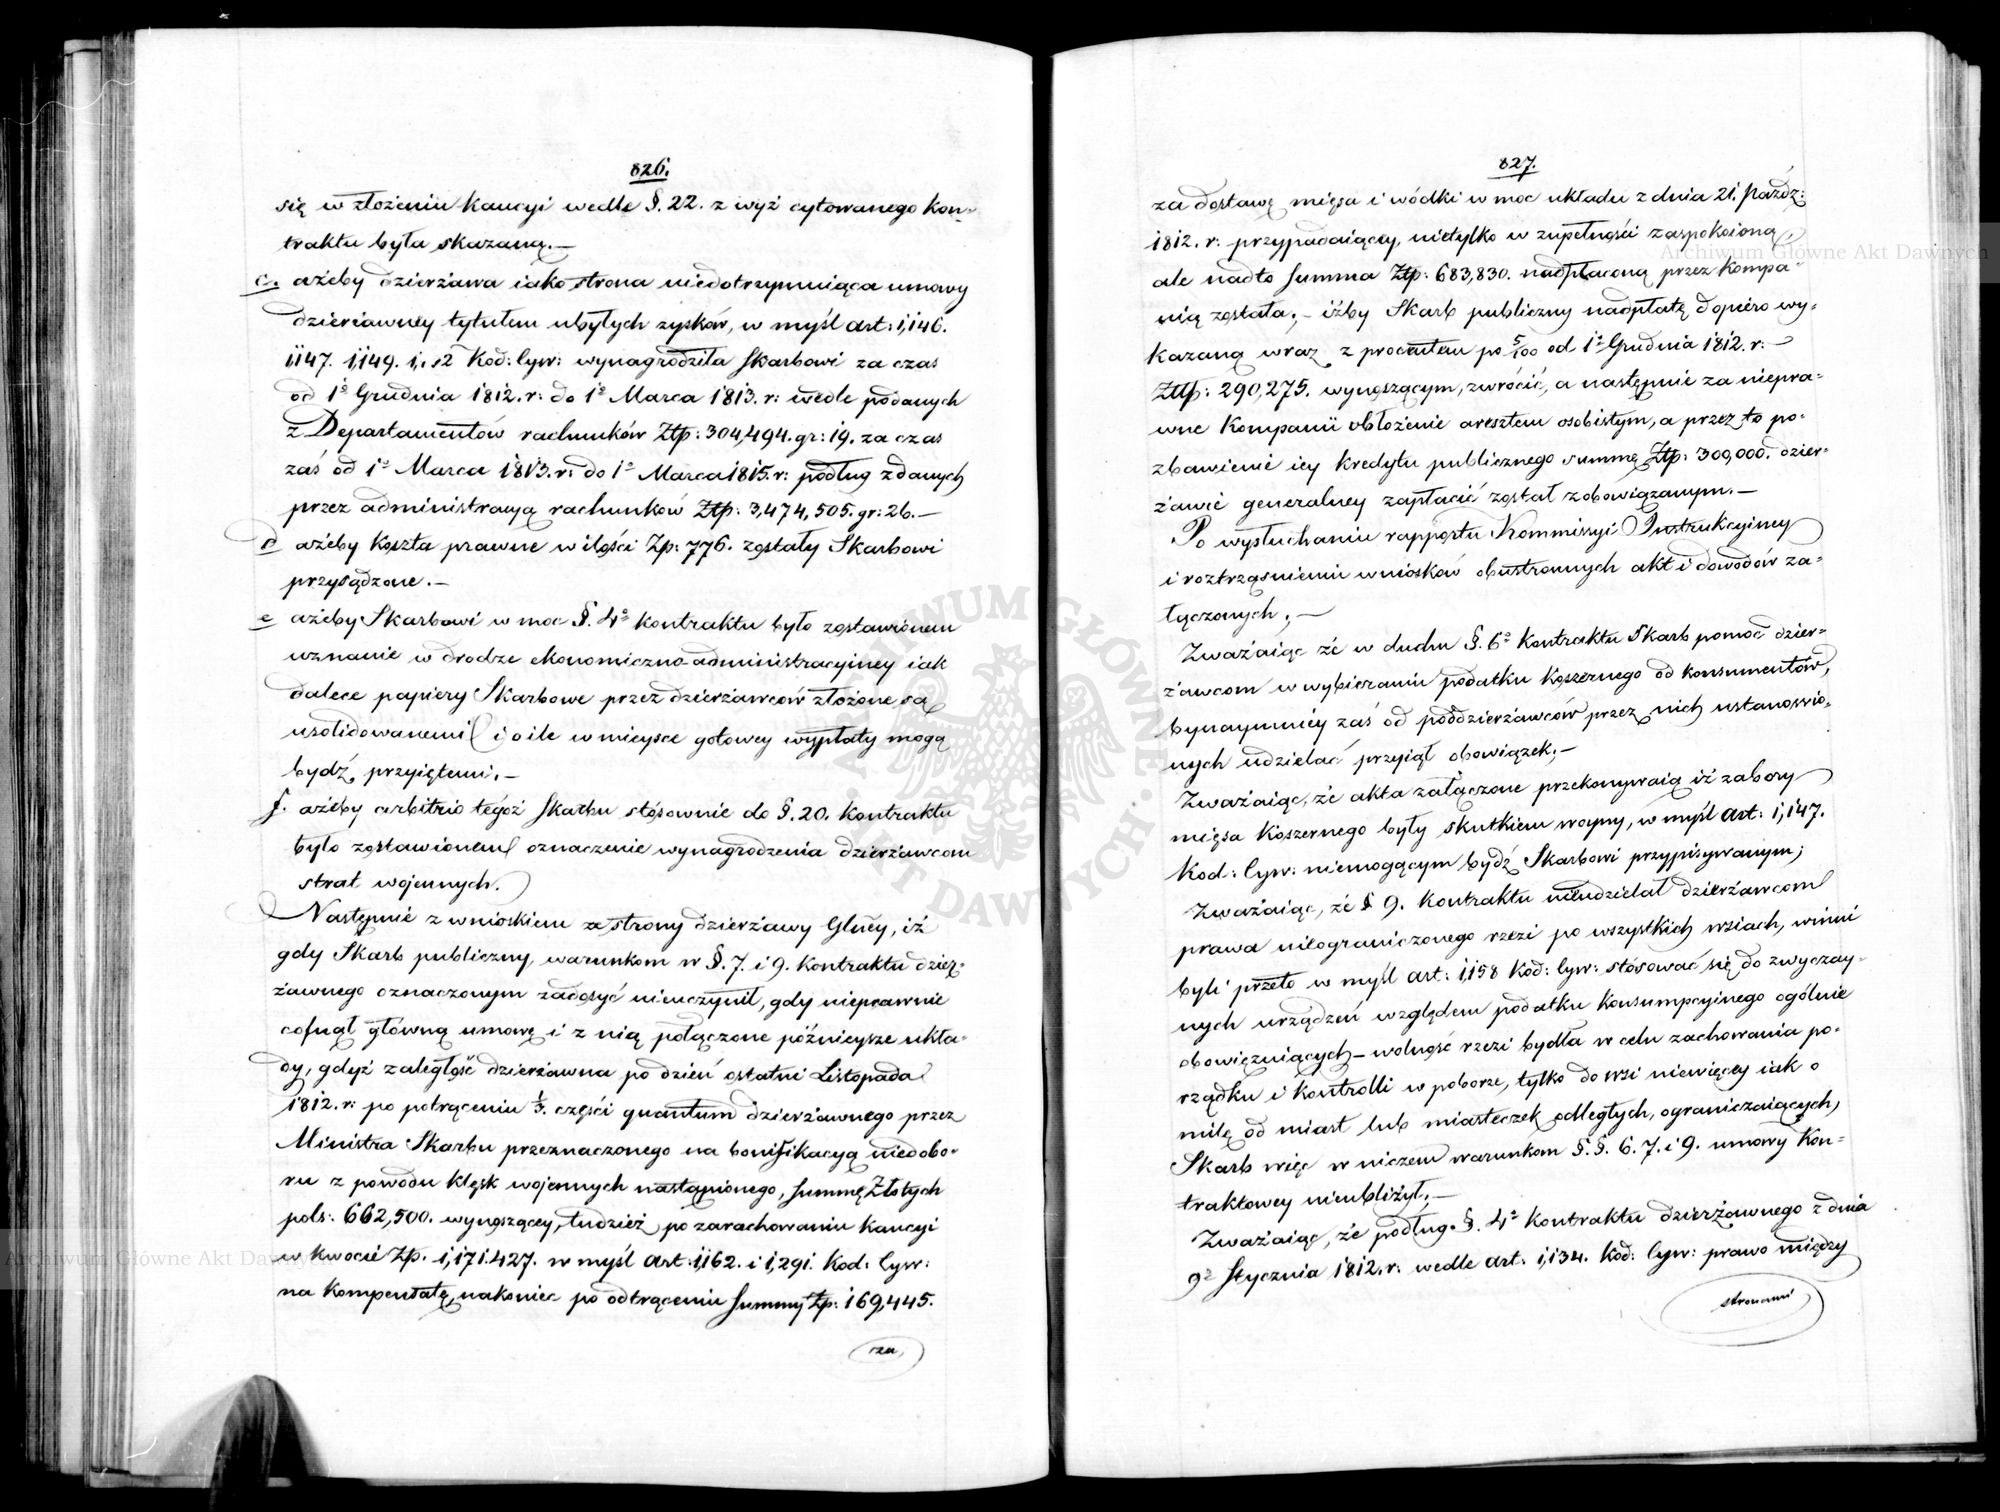 826.
się w złożeniu kaucyi wedle §. 22. z wyż cytowanego kon=
traktu była skazaną.—
c. ażeby dzierżawa iako strona niedotrzymuiąca umowy
dzierżawney tytułem ubyłych zysków, w myśl art: 1,146.
1147. 1,149. 1, 2 Kod: Cyw: wynagrodziła Skarbowi za czas
od 1º Grudnia 1812. r: do 1º Marca 1813. r: wedle podanych
z Departamentów rachunków Złtp: 304,494. gr: 19. za czas
zaś od 1º Marca 1813. r: do 1º Marca 1815. r: podług zdanych
przez administracyą rachunków Złtp: 3,474,505. gr: 26.—
d ażeby koszta prawne w ilości Zp: 776. zostały Skarbowi
przysądzone.—
e ażeby Skarbowi w moc §. 4º kontraktu było zostawionem
uznanie w drodze ekonomiczno-administracyiney iak
dalece papiery Skarbowe przez dzierżawców złożone są
usolidowanemi i o ile w mieysce gotowey wypłaty mogą
bydź przyiętemi.—
f. ażeby arbitrio tegoż Skarbu stósownie do §. 20. kontraktu
było zostawionem oznaczenie wynagrodzenia dzierżawcom
strat woiennych.
Następnie z wnioskiem ze strony dzierżawy Głney, iż
gdy Skarb publiczny, warunkom w §. 7. i 9. kontraktu dzier=
żawnego oznaczonym zadosyć nieuczynił, gdy nieprawnie
cofnął główną umowę i z nią połączone późnieysze ukła=
dy, gdyż zaległość dzierżawna po dzień ostatni Listopada
1812. r: po potrąceniu ⅓. części quantum dzierżawnego przez
Ministra Skarbu przeznaczonego na bonifikacyą niedobo=
ru z powodu klęsk woiennych nastąpionego, summę Złotych
pols: 662,500. wynoszącey, tudzież po zarachowaniu kaucyi
w kwocie Zp. 1,171.427. w myśl art: 1,162. i 1,291. Kod: Cyw:
na kompensatę, nakoniec po odtrąceniu Summy Złp: 169,445.
rza,
827.
za dostawę mięsa i wódki w moc układu z dnia 21. Paźdz:
1812. r: przypadaiącey, nietylko w zupełności zaspokoioną,
ale nadto summa Złtp: 683,830. nadpłaconą przez kompa=
nią została;— iżby Skarb publiczny nadpłatę dopiero wy=
kazaną wraz z procentem po 5/100 od 1º Grudnia 1812. r:—
Złtp: 290,275. wynoszącym, zwrócić, a następnie za niepra=
wne kompanii obłożenie aresztem osobistym, a przez to po=
zbawienie iey kredytu publicznego summę Złtp: 300,000. dzier=
żawie generalney zapłacić został zobowiązanym.—
Po wysłuchaniu rapportu Kommissyi Instrukcyiney
i roztrząśnieniu wniosków obustronnych akt i dowodów za=
łączonych;—
Zważaiąc że w duchu §. 6º kontraktu Skarb pomoc dzier=
żawcom w wybieraniu podatku koszernego od konsumentów,
bynaymniéy zaś od poddzierżawców przez nich ustanowio=
nych udzielać przyiął obowiązek;—
Zważaiąc, że akta załączone przekonywaią iż zabory
mięsa koszernego były skutkiem woyny, w myśl art: 1,147.
Kod: Cyw: niemogącym bydź Skarbowi przypisywanym;
Zważaiąc, że § 9. kontraktu nieudzielał dzierżawcom
prawa nieograniczonego rzezi po wszystkich wsiach, winni
byli przeto w myśl art: 1,158 Kod: Cyw: stósować się do zwyczay=
nych urządzeń względem podatku konsumpcyinego ogólnie
obowięzuiących— wolność rzezi bydła w celu zachowania po=
rządku i kontrolli w poborze, tylko do wsi niewięcey iak o
milę od miast lub miasteczek odległych, ograniczaiących,
Skarb więc w niczem warunkom §.§. 6. 7. i 9. umowy kon=
traktowey nieubliżył;—
Zważaiąc, że podług §. 4º kontraktu dzierżawnego z dnia
9º Stycznia 1812. r: wedle art: 1,134. Kod: Cyw: prawo między
stronami
Archiwum Główne Akt Dawnych
Archiwum Główne Akt Dawnych
ARCHIWUM GŁÓWNE AKT DAWNYCH